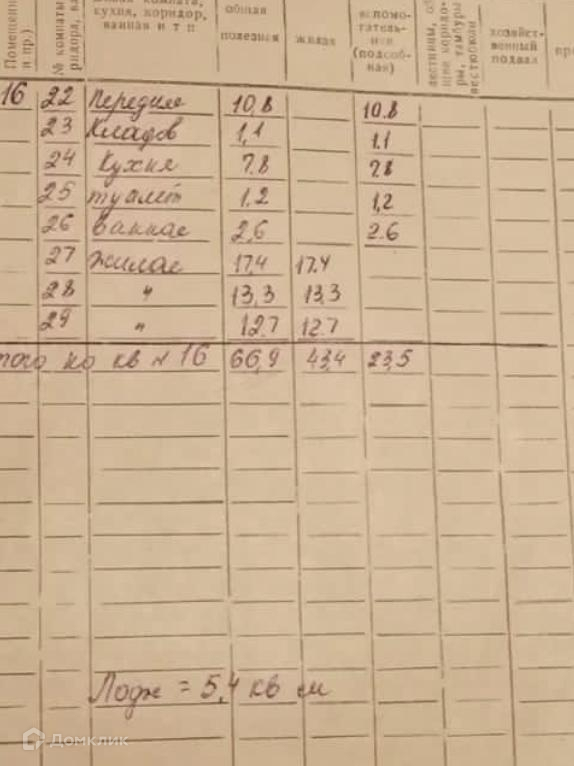 кухня, коридор, ванная и т п
общая
полезная
жилая
вспомо-
гатель-
ная
(подсоб-
ная)
хозяйст-
венный
подвал
16 22 Передняя 10,8 10.8
23 Кладов 1,1 1.1
24 Кухня 7.8 7.8
25 туалет 1.2 1,2
26 Ванная 2,6 2.6
27 Жилая 17,4 17.4
28 " 13,3 13,3
29 " 12.7 12.7
того по кв N 16 66,9 43,4 23,5
Лодж = 5,4 кв м
Домклик